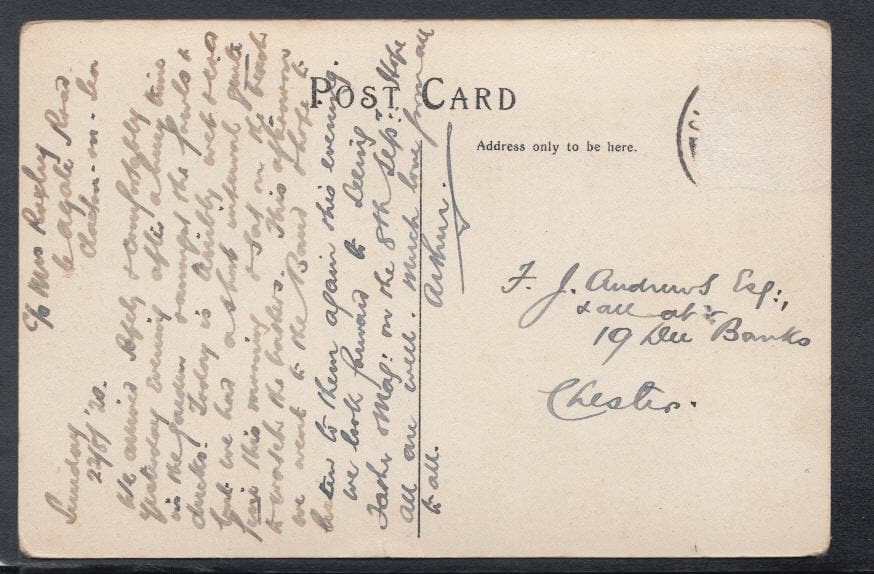 POST CARD
Address only to be here.
F. J. Andrews Esq:,
& all at
19 Dee Banks
Chester.
c/o Mrs
Agate Road
Clacton-on-Sea
Sunday
'20.
We arrived safely & comfortably
yesterday evening after a busy time
in the garden & amongst the fowls &
ducks. Today is wet &
but we had a short interval
this morning & sat on the beach
to watch the bathers. This afternoon
we went to the Band & hope to
listen to them again this evening.
We look forward to seeing
Father & Mag: on the 8th Sep:. Hope
all are well. Much love from all
to all. Arthur.